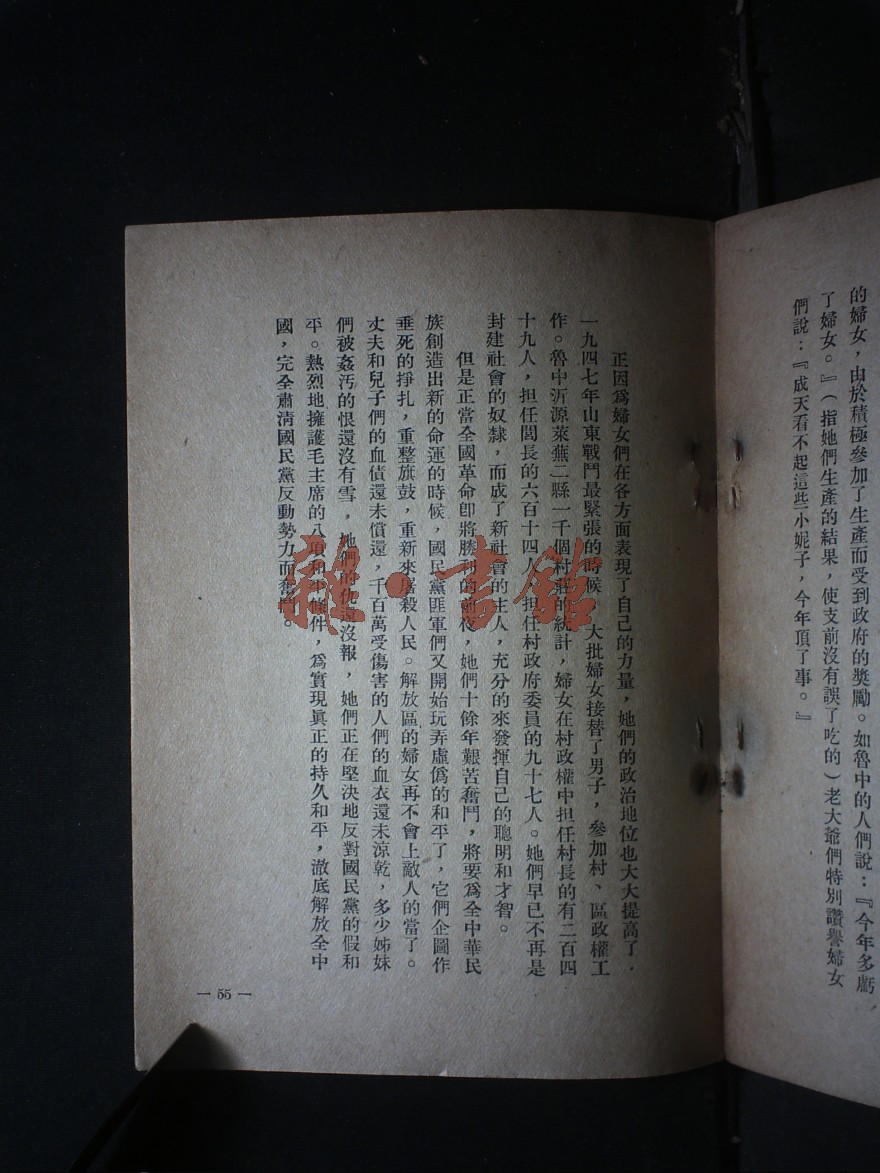 的婦女，由於積極參加了生產而受到政府的獎勵。如魯中的人們說：『今年多虧
了婦女。』（指她們生產的結果，使支前沒有誤了吃的）老大爺們特別讚譽婦女
們說：『成天看不起這些小妮子，今年頂了事。』
正因爲婦女們在各方面表現了自己的力量，她們的政治地位也大大提高了，
一九四七年山東戰鬥最緊張的時候，大批婦女接替了男子，參加村、區政權工
作。魯中沂源萊蕪二縣一千個村莊的統計，婦女在村政權中担任村長的有二百四
十九人，担任閭長的六百十四人，担任村政府委員的九十七人。她們早已不再是
封建社會的奴隸，而成了新社會的主人，充分的來發揮自己的聰明和才智。
但是正當全國革命卽將勝利的前夜，她們十餘年艱苦奮鬥，將要爲全中華民
族創造出新的命運的時候，國民黨匪軍們又開始玩弄虛僞的和平了，它們企圖作
垂死的掙扎，重整旗鼓，重新來屠殺人民。解放區的婦女再不會上敵人的當了。
丈夫和兒子們的血債還未償還，千百萬受傷害的人們的血衣還未涼乾，多少姊妹
們被姦汚的恨還沒有雪，她們的仇還沒報，她們正在堅決地反對國民黨的假和
平。熱烈地擁護毛主席的八項和平條件，爲實現眞正的持久和平，澈底解放全中
國，完全肅清國民黨反動勢力而奮鬥。
— 55 —
雜·書館